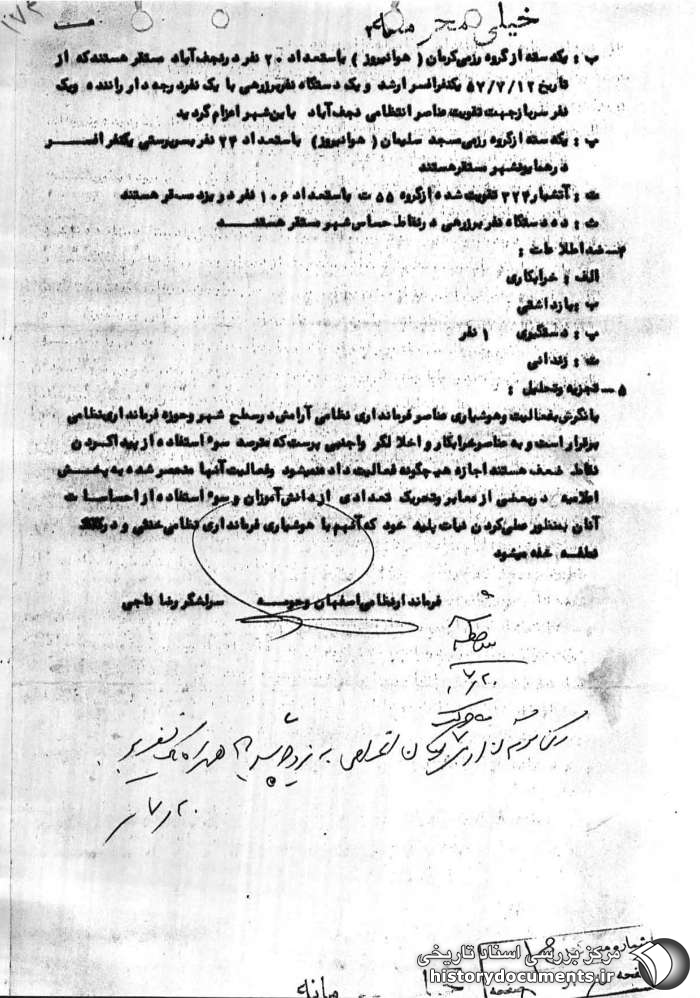 خیلی محرمانه
ب : یکدسته از گروه رزمی کرمان ( هوانیروز ) باستعداد ۲۰ نفر در نجف آباد مستقر هستند که از
تاریخ ۵۷/۷/۱۲ یکنفر افسر ارشد و یک دستگاه نفربر زرهی با یک نفر درجه دار راننده و یک
نفر سرباز جهت تقویت عناصر انتظامی نجف آباد باین شهر اعزام گردید
پ : یکدسته از گروه رزمی مسجد سلیمان ( هوانیروز ) باستعداد ۲۴ نفر بسرپرستی یکنفر افسر
در همایونشهر مستقر هستند
ت : آتشبار ۳۲۲ تقویت شده از گروه ۵۵ ت باستعداد ۱۰۶ نفر در یزد مستقر هستند
ث : ده دستگاه نفربر زرهی در نقاط حساس شهر مستقر هستند
۴ـ ضد اطلاعات :
الف : خرابکاری
ب : بازداشتی
پ : دستگیری ۱ نفر
ت : زندانی
۵ ـ تجزیه و تحلیل :
با نگرش بفعالیت و هوشیاری عناصر فرمانداری نظامی آرامش در سطح شهر و حوزه فرمانداری نظامی
برقرار است و به عناصر خرابکار و اخلالگر واجنبی پرست که مترصد سوء استفاده از پیدا کردن
نقاط ضعف هستند اجازه هیچگونه فعالیت داده نمیشود وفعالیت آنها منحصر شده به پخش
اعلامیه در بعضی از معابر وتحریک تعدادی از دانش آموزان و سوء استفاده از احساسات
آنان بمنظور عملی کردن نیات پلید خود که آنهم با هوشیاری فرمانداری نظامی خنثی و در
نطفه خفه میشود
فرماندار نظامی اصفهان وحومه سرلشگر رضا ناجی
ملاحظه شد
۲۰ر۷
۲۰ر۷
مرکز بررسی اسناد تاریخی
historydocuments.ir